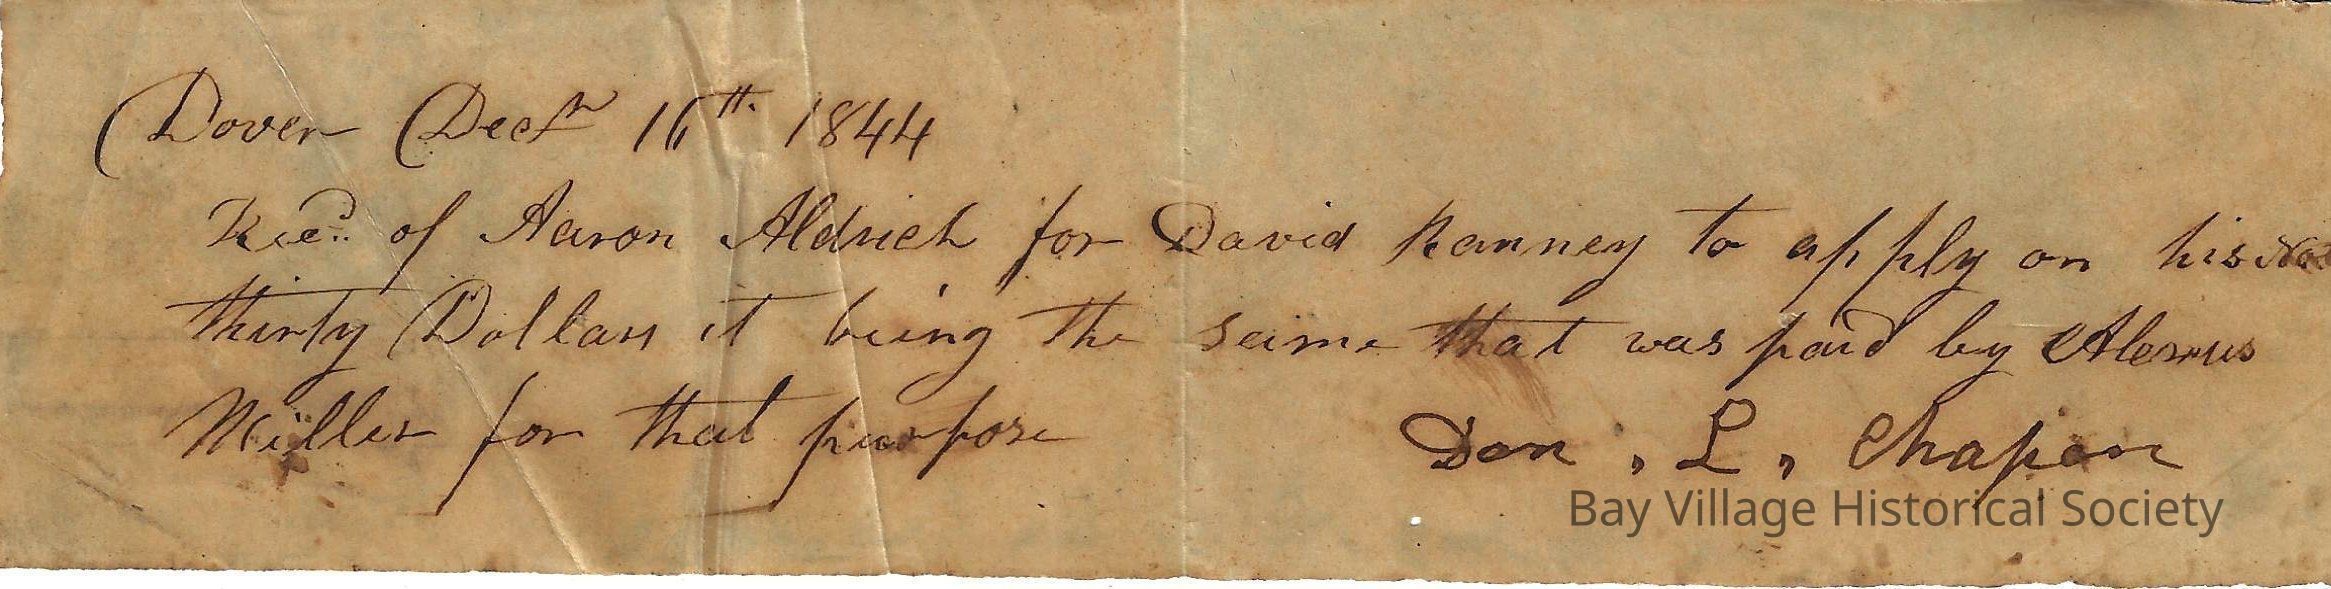 Dover Decr 16th 1844
Recd of Aaron Aldrich for David Ranney to apply on his
thirty Dollars it being the same that was paid by
Miller for that purpose
Don, L, Chapin
Bay Village Historical Society